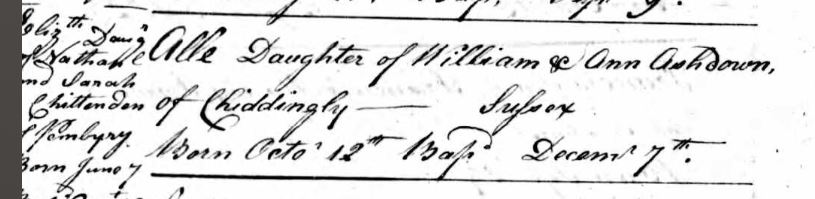 Bap. Sept 9.
Eliz.th Daug.r
of Nathan.l
and Sarah
Chittenden
of Pembury.
Born June 7
Alle Daughter of William & Ann Ashdown,
of Chiddingly — Sussex
Born Octo.r 12th Bap.d Decem.r 7th.